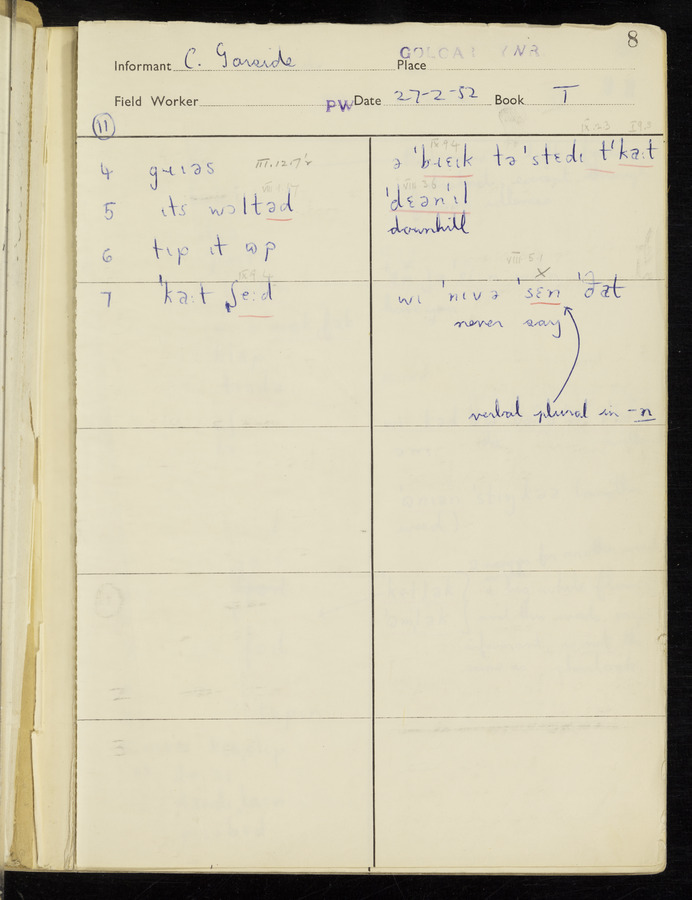 8
Informant C. Garside Place GOLCAR YNR
Field Worker PW Date 27-2-52 Book I
11
4 gɹɪəs III.12.7
5 ɪts wɔltəd
6 tɪp ɪt ʊp
7 ˈkaːt ʃeːd
IX.9.4
ə ˈbrɛɪk təˈstɛdɪ tˈkaːt
ˈdɛənˈɪl
downhill
VIII.5.1
wɪ ˈnɪvə ˈsɛn ˈðat
never say
verbal plural in -n